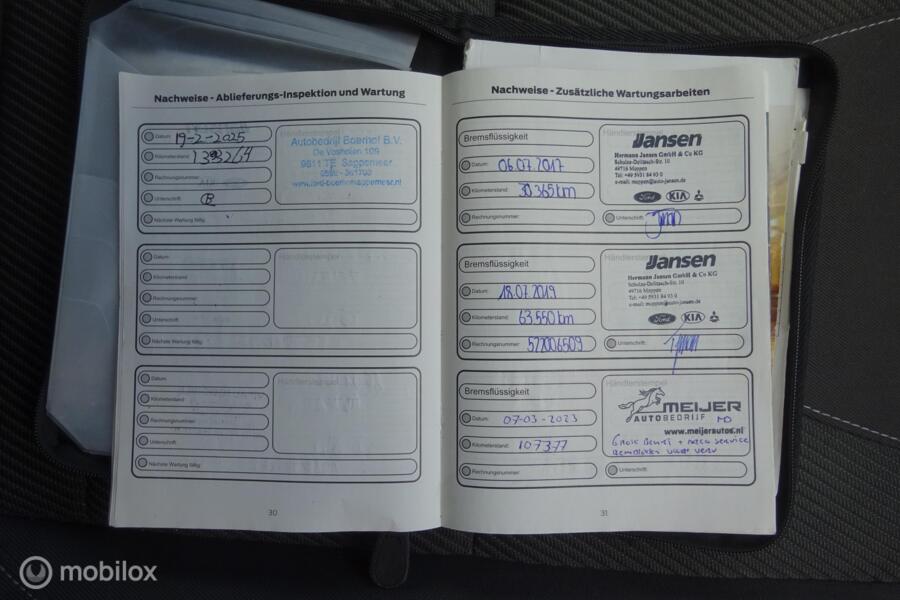 Nachweise - Ablieferungs-Inspektion und Wartung
Datum: 19-2-2025
Kilometerstand: 133264
Rechnungsnummer:
Unterschrift:
Nächste Wartung fällig:
Händlerstempel
Autobedrijf Boerhof B.V.
De Vosholen 109
9611 TE Sappemeer
0598 - 361700
Datum:
Kilometerstand:
Rechnungsnummer:
Unterschrift:
Nächste Wartung fällig:
Händlerstempel
Datum:
Kilometerstand:
Rechnungsnummer:
Unterschrift:
Nächste Wartung fällig:
Händlerstempel
30
Nachweise - Zusätzliche Wartungsarbeiten
Bremsflüssigkeit
Datum: 06.07.2017
Kilometerstand: 30365 km
Rechnungsnummer:
Händlerstempel
Jansen
Hermann Jansen GmbH & Co KG
Schulze-Delitzsch-Str. 10
49716 Meppen
Tel: +49 5931 84 93 0
e-mail: meppen@auto-jansen.de
Ford KIA
Unterschrift:
Bremsflüssigkeit
Datum: 18.07.2019
Kilometerstand: 63.550 km
Rechnungsnummer: 522006509
Händlerstempel
Jansen
Hermann Jansen GmbH & Co KG
Schulze-Delitzsch-Str. 10
49716 Meppen
Tel: +49 5931 84 93 0
e-mail: meppen@auto-jansen.de
Ford KIA
Unterschrift:
Bremsflüssigkeit
Datum: 07-03-2023
Kilometerstand: 107377
Rechnungsnummer:
Händlerstempel
MEIJER
AUTOBEDRIJF
www.meijerautos.nl
Grote Beurt + service
Unterschrift:
31
mobilox